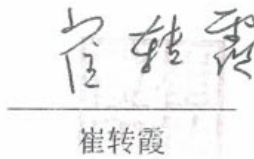 崔转霞
崔转霞